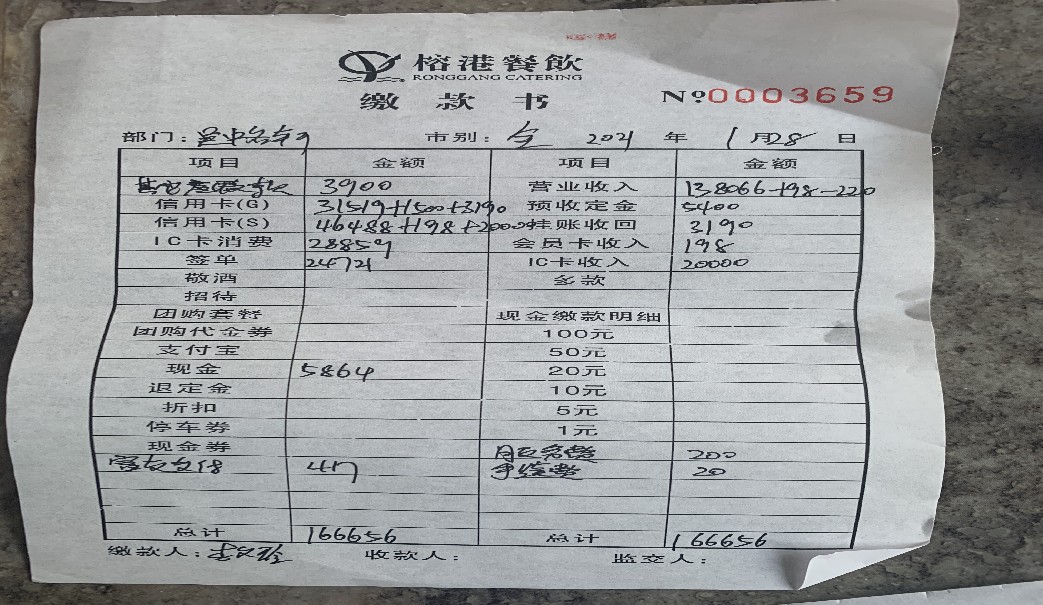 榕港餐飲
RONGGANG CATERING
缴款书 Nº0003659
部门: 市别: 全 2021 年 1月28日
项目 金额 项目 金额
3900 营业收入 138066+98-220
信用卡(G) 31519+1500+3190 预收定金 5400
信用卡(S) 46488+198+20000 挂账收回 3190
IC卡消费 28859 会员卡收入 198
签单 24721 IC卡收入 20000
敬酒 多款
招待
团购套餐 现金缴款明细
团购代金券 100元
支付宝 50元
现金 5864 20元
退定金 10元
折扣 5元
停车券 1元
现金券 200
417 手续费 20
总计 166656 总计 166656
缴款人: 收款人: 监交人: